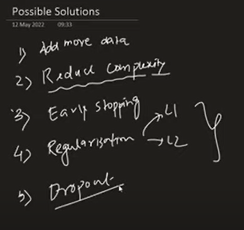 Possible Solutions
12 May 2022 09:33
1) Add more data
2) Reduce complexity
3) Early stopping
4) Regularisation L1
L2
5) Dropout